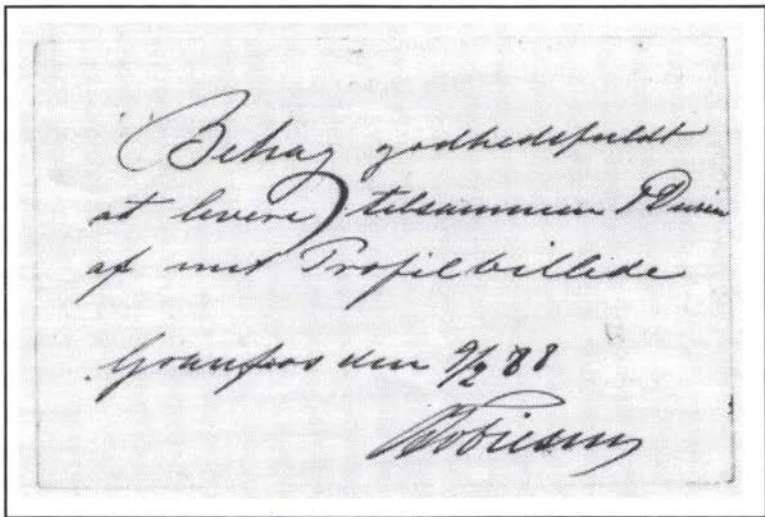 Behag godhedsfuldt
at levere tilsammen 1 Dusin
af mit Profilbillede
Granfos den 9/2 88